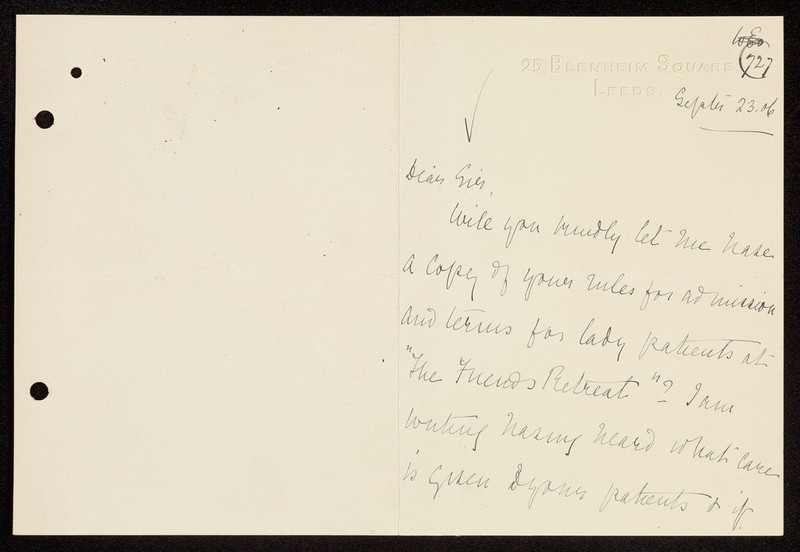 (727)
25, BLENHEIM SQUARE
LEEDS.
Septr 23.06
Dear Sir,
Will you kindly let me have
a copy of your rules for admission
and terms for lady patients at
"The Friends Retreat"? I am
writing having heard what care
is given to your patients & if